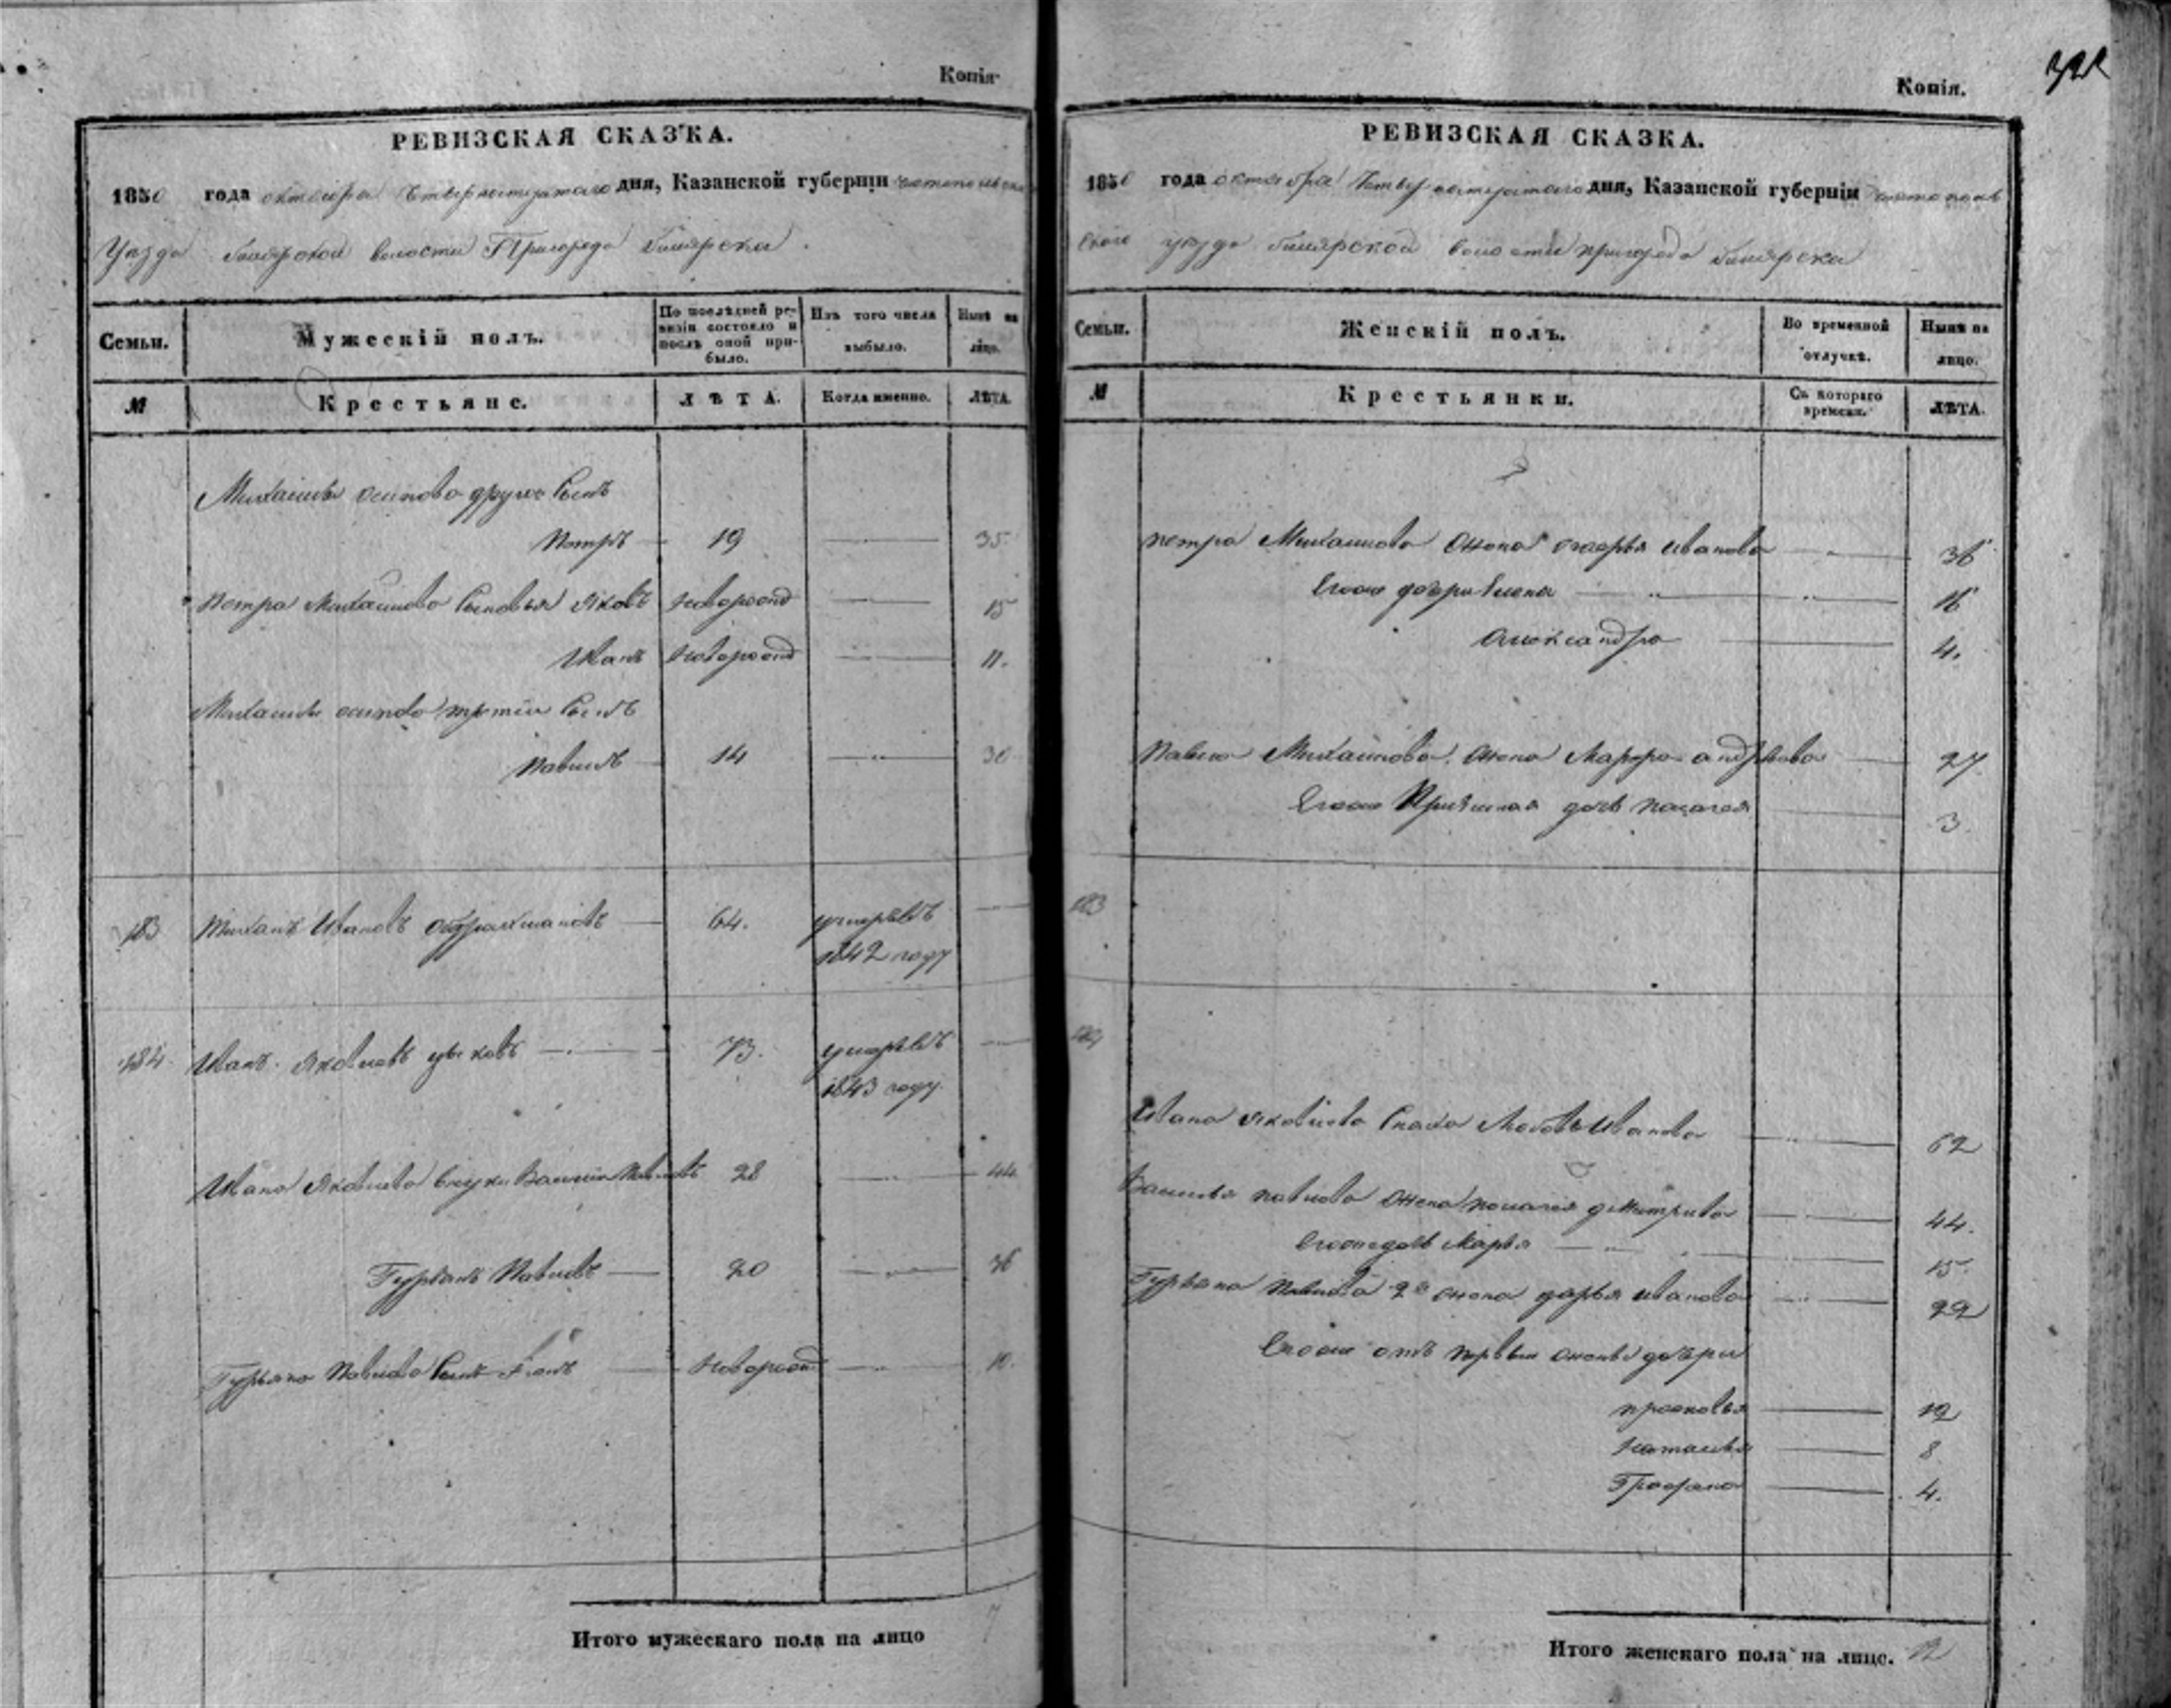 Копія
РЕВИЗСКАЯ СКАЗКА.
1850 года октября Четвертогонатцатаго дня, Казанской губерніи
Уезда Билярской волости Пригорода Билярска.
Семьи. Мужескій полъ. По послѣдней ревизіи состояло и послѣ оной прибыло. Изъ того числа выбыло. Нынѣ на лицо.
№ Крестьяне. ЛѢТА. Когда именно. ЛѢТА.
Михаилы осипова другой Сынъ
Петръ 19 35
Петра Михаилова Сыновья Яковъ Новорожд 15
Иванъ Новорожд 11.
Михаилы осипова третiи Сынъ
Павилъ 14 30
183 Ивановъ 64. умеръ въ
1842 году
184 Иванъ Яковлевъ 73. умеръ въ
1843 году.
Ивана Яковлева внуки Василiи Павловъ 28 44
Гурьянъ Павловъ 20 36
Гурьяна Павлова Сынъ Новорожд 10.
Итого мужескаго пола на лицо 7
Копія.
РЕВИЗСКАЯ СКАЗКА.
1850 года октября дня, Казанской губерніи Чистополь
ского уезда Билярской волости пригорода Билярска
Семьи. Женскій полъ. Во временной отлучкѣ. Нынѣ на лицо.
№ Крестьянки. Съ котораго времени. ЛѢТА.
Петра Михаилова Жена Иванова 36
Егоже дочери Елена 16
Александра 4.
Павила Михаилова Жена Марфа андреева 27
Егоже дочь Палагея 3
183
184
Ивана Яковлева Сноха Иванова 62
Василья павлова Жена палагея дмитриева 44.
Егоже дочь Марья 15.
Гурьяна Павлова 2я жена дарья иванова 22
Егоже отъ первыи жены дочери
прасковья 12
Наталья 8
4.
Итого женскаго пола на лице. 12